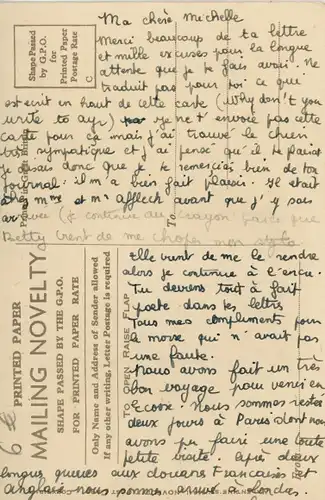 Shape Passed
by G.P.O.
for
Printed Paper
Postage Rate
C
Ma chère Michelle
Merci beaucoup de ta lettre
et mille excuses pour la longue
attente que je te fais avoir. Ne
traduit pas pour toi ce qui
est écrit en haut de cette carte (Why don't you
write to ay) je ne t'envoie pas cette
carte pour ça mais j'ai trouvé le chien
très sympathique et j'ai pensé qu'il te plairait
je disais donc que je te remerciais bien de ton
journal: il m'a bien fait plaisir. Il était
Mme et Mr Affleck avant que j'y sois
arrivée (je continue au crayon parce que
Betty vient de me choper mon stylo
Elle vient de me le rendre
alors je continue à l'encre.
Tu deviens tout à fait
poète dans tes lettres
Tous mes compliments pour
la morse qui n'avait pas
une faute.
Nous avons fait un très
bon voyage pour venir en
Ecosse. Nous sommes restés
deux jours à Paris dont nous
avons pu faire une toute
petite visite. Après deux
longues queues aux douanes Françaises et
Anglaises nous sommes arrivés à Londres.
6
PRINTED PAPER
MAILING NOVELTY
SHAPE PASSED BY THE G.P.O.
FOR PRINTED PAPER RATE
Only Name and Address of Sender allowed
If any other writing, Letter Postage is required
TO OPEN RAISE FLAP
To